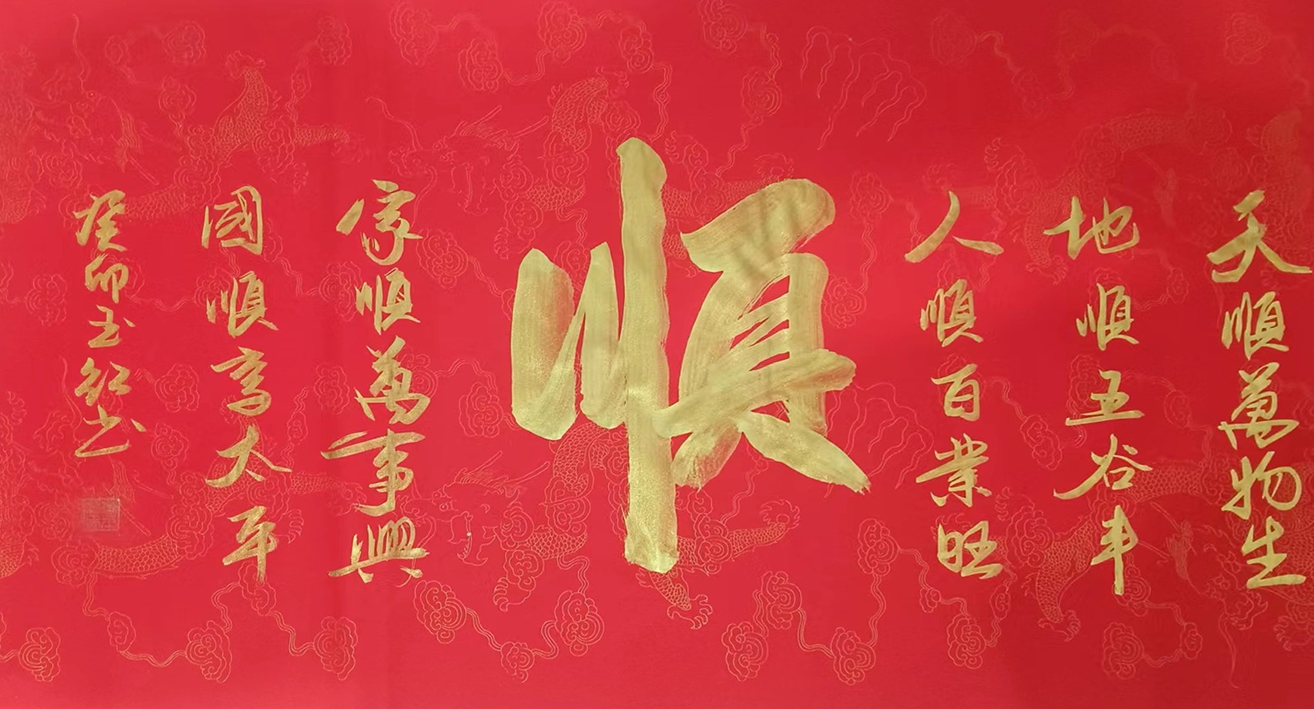 天順萬物生
地順五谷丰
人順百業旺
順
家順萬事興
國順享太平
癸卯玉红书